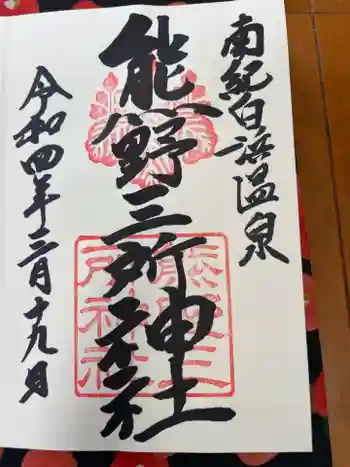 南紀白浜温泉
熊野三所神社
令和四年三月十九日
熊野三所神社